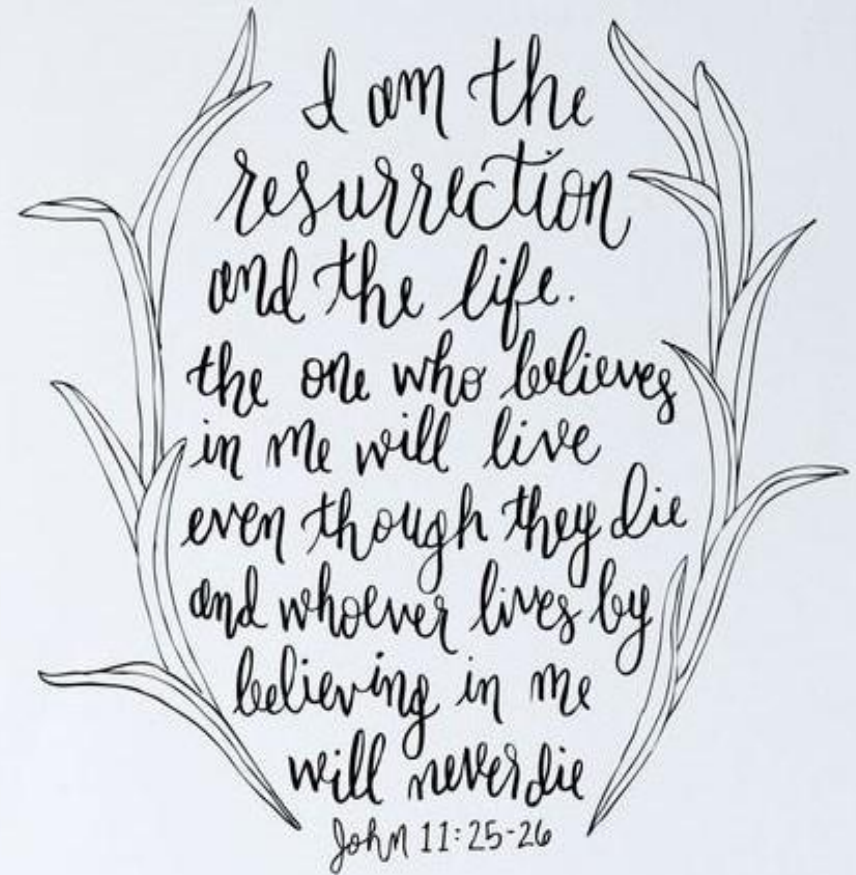 I am the
resurrection
and the life.
the one who believes
in me will live
even though they die
and whoever lives by
believing in me
will never die
John 11:25-26